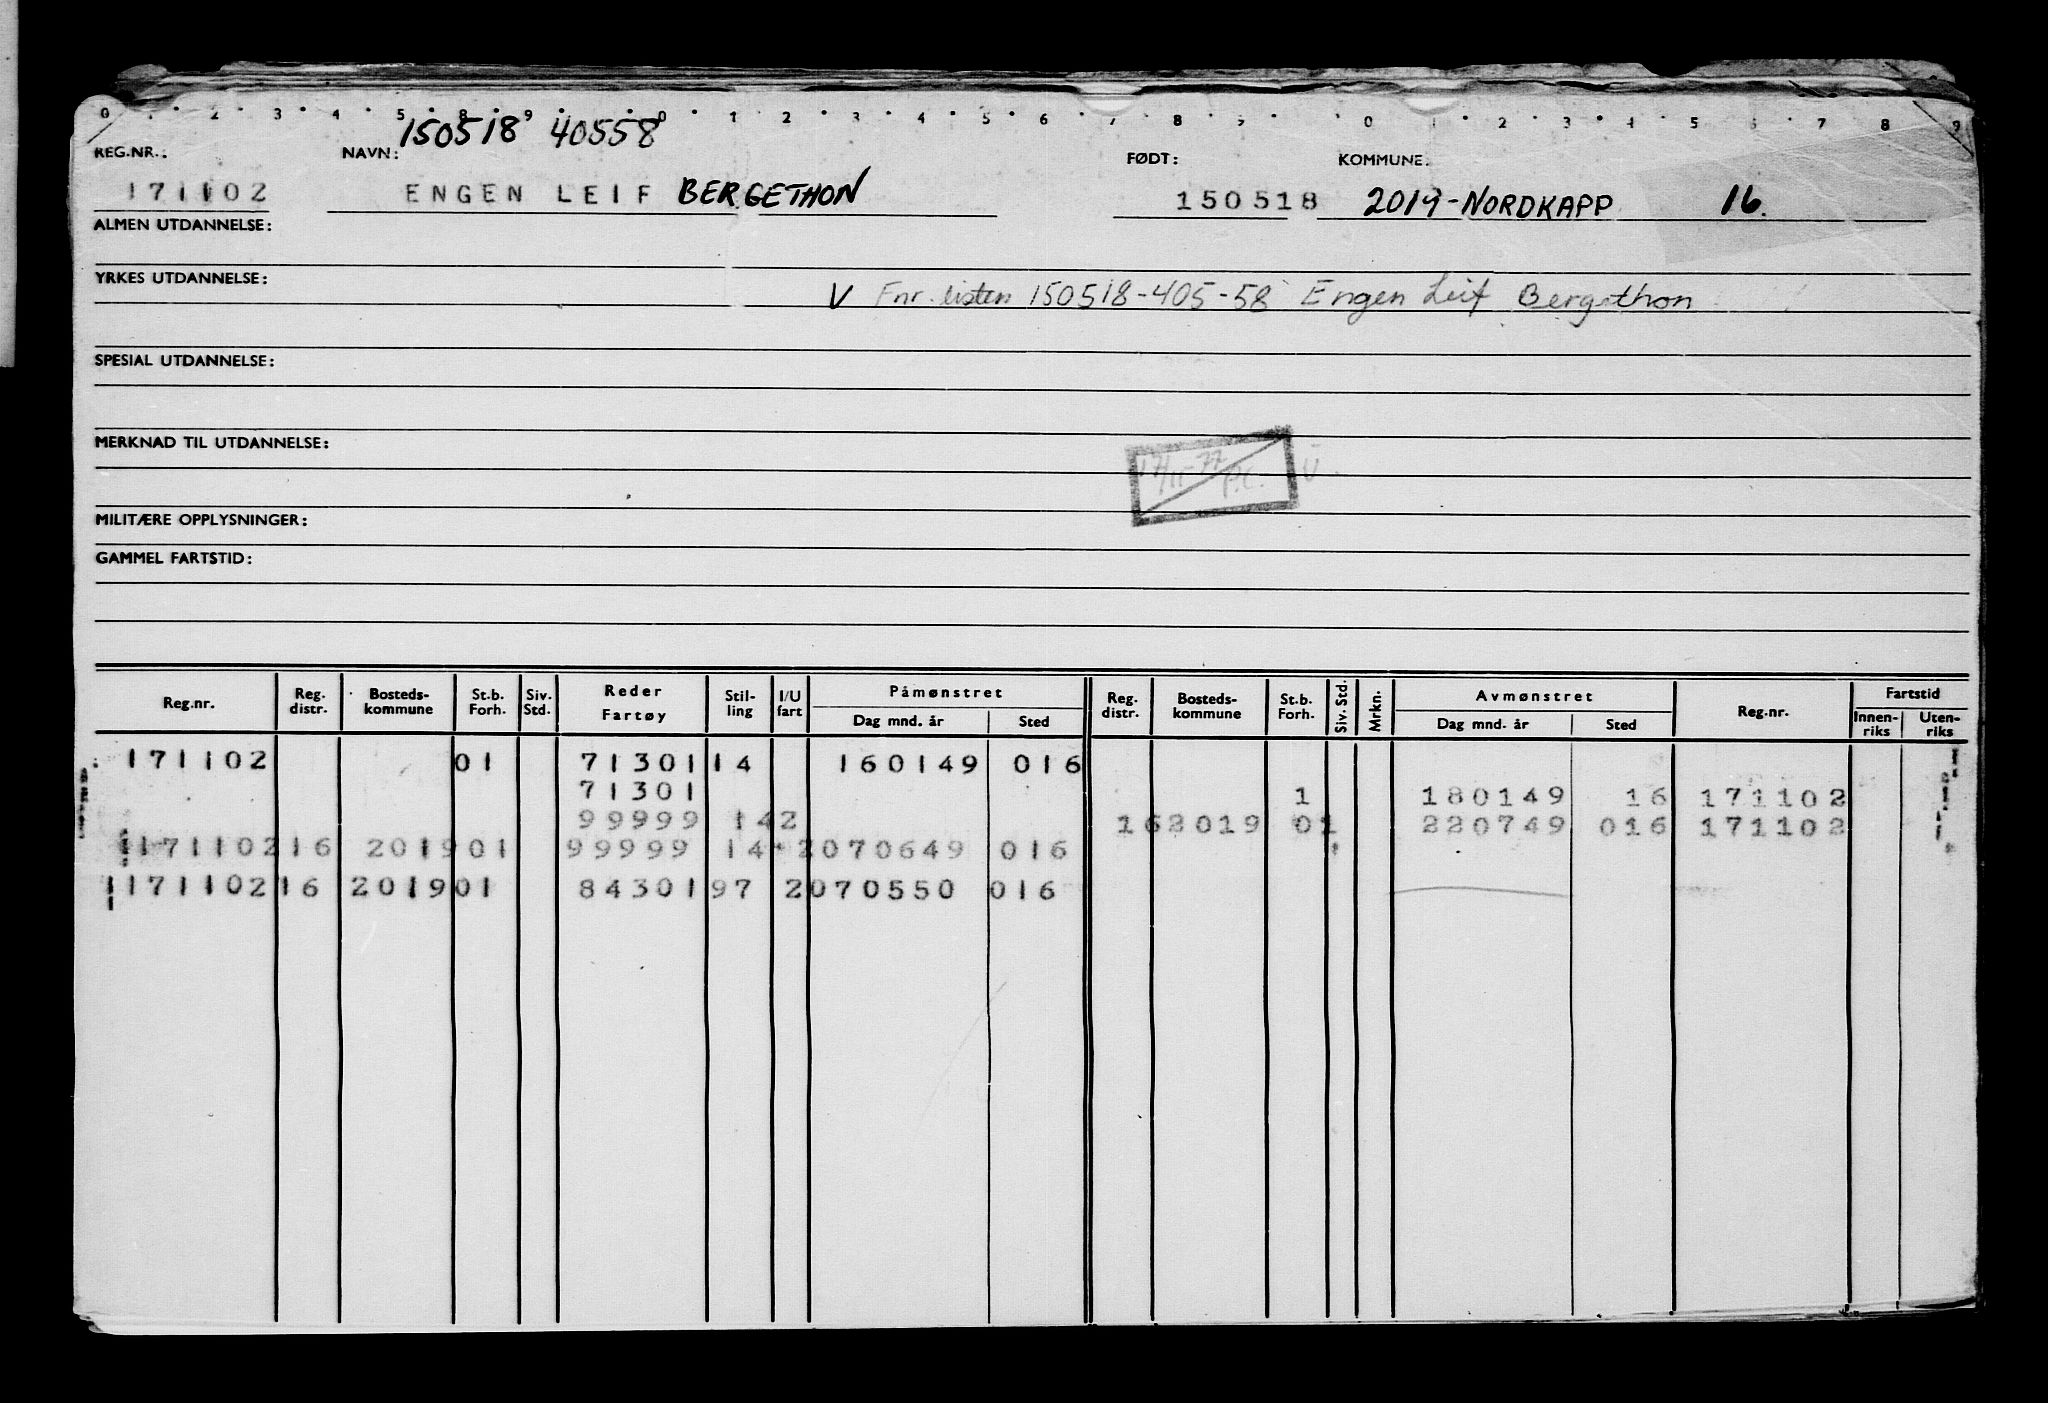 0 1 2 3 4 5 8 9 0 1 2 3 4 5 6 7 8 9 0 1 2 3 4 5 6 7 8 9
150518 40558
REG.NR.: NAVN: FØDT: KOMMUNE:
171102 ENGEN LEIF BERGETHON 150518 2019-NORDKAPP 16.
ALMEN UTDANNELSE:
YRKES UTDANNELSE:
V Fnr. listen 150518-405-58 Engen Leif Bergethon
SPESIAL UTDANNELSE:
MERKNAD TIL UTDANNELSE:
17/11-77 P.C. U.
MILITÆRE OPPLYSNINGER:
GAMMEL FARTSTID:
Reg.nr. Reg. distr. Bosteds-kommune St.b. Forh. Siv. Std. Reder Fartøy Stil-ling I/U fart Påmønstret Dag mnd. år Sted Reg. distr. Bosteds-kommune St.b. Forh. Siv. Std. Mrkn. Avmønstret Dag mnd. år Sted Reg.nr. Fartstid Innen-riks Uten-riks
171102 01 71301 14 160149 016
71301 1 180149 16 171102
99999 142 16 2019 01 220749 016 171102
171102 16 2019 01 99999 14 2 070649 016
171102 16 2019 01 84301 97 2 070550 016